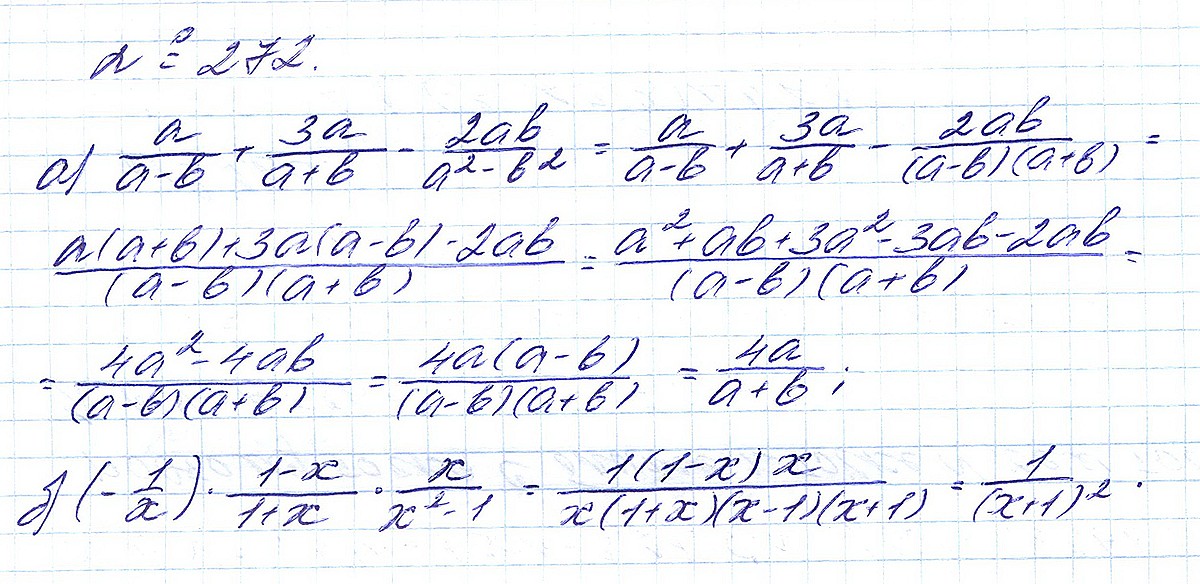 № 272.
а) a/(a-b) + 3a/(a+b) - 2ab/(a²-b²) = a/(a-b) + 3a/(a+b) - 2ab/((a-b)(a+b)) =
(a(a+b)+3a(a-b)-2ab)/((a-b)(a+b)) = (a²+ab+3a²-3ab-2ab)/((a-b)(a+b)) =
= (4a²-4ab)/((a-b)(a+b)) = (4a(a-b))/((a-b)(a+b)) = 4a/(a+b);
б) (-1/x) · (1-x)/(1+x) · x/(x²-1) = (1(1-x)x)/(x(1+x)(x-1)(x+1)) = 1/(x+1)².